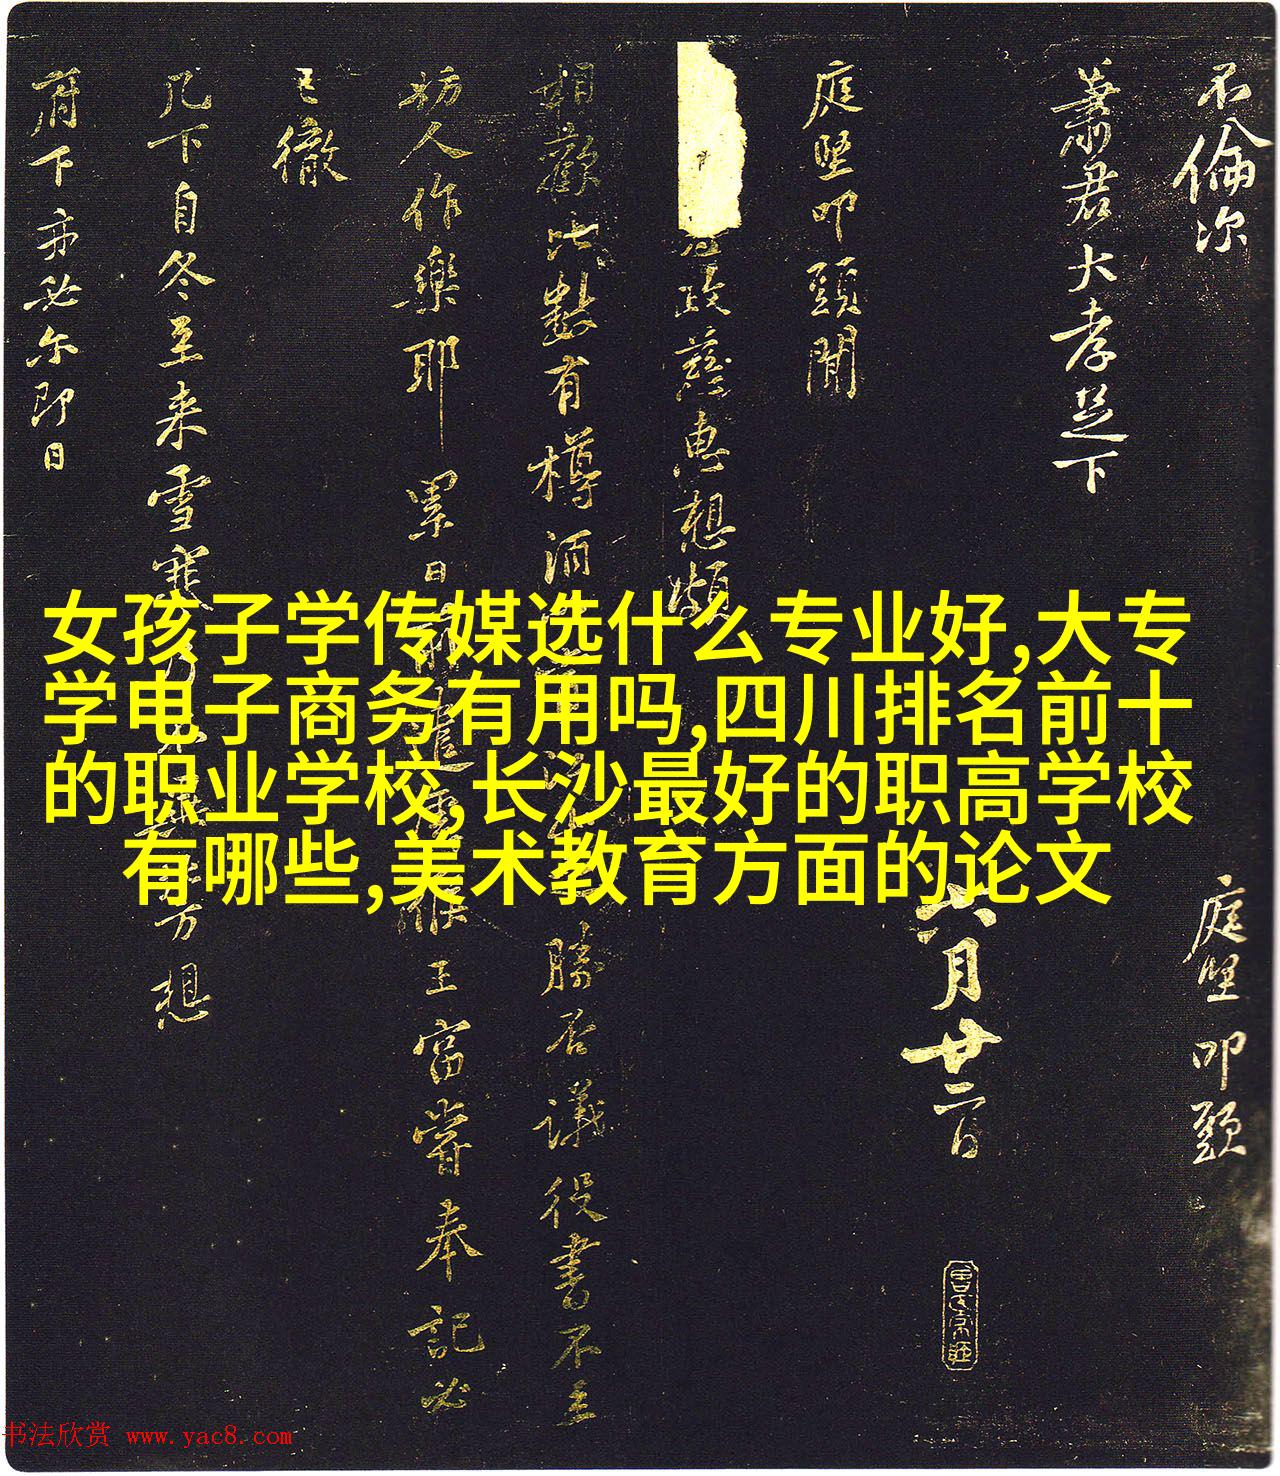 女孩子学传媒选什么专业好,大专
学电子商务有用吗,四川排名前十
的职业学校,长沙最好的职高学校
有哪些,美术教育方面的论文
不倫次
庭堅叩頭
蕭君大孝足下
六月廿二日
庭堅叩頭聞
政慈惠想頗
相歡比數有樽酒
勝否議役書不
妨人作樂耶累日
王富嘗奉記必
已徹
几下自冬至来雪寒
方想
府下亦必尔即日
书法欣赏 www.yac8.com